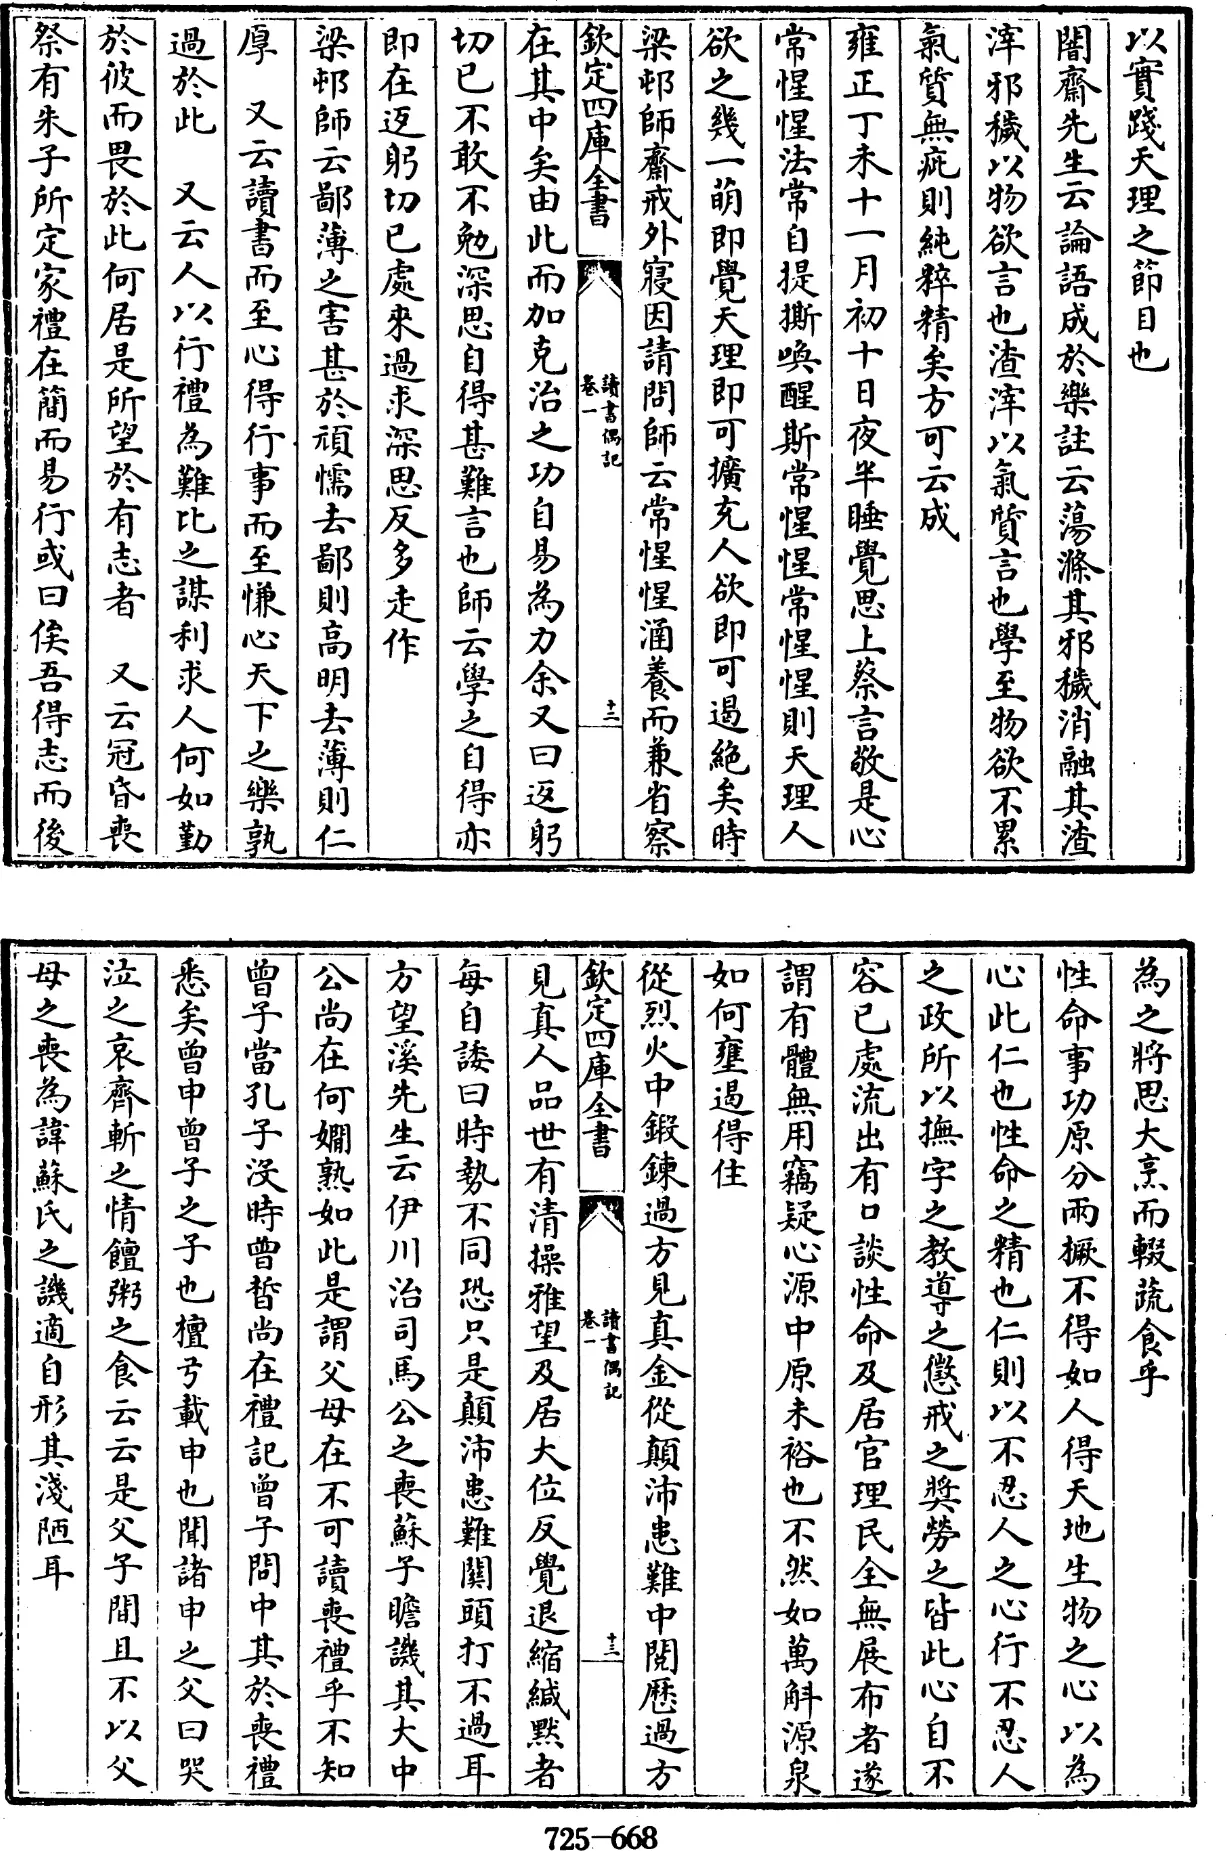 以實踐天理之節目也
闇齋先生云論語成於樂註云蕩滌其邪穢消融其渣
滓邪穢以物欲言也渣滓以氣質言也學至物欲不累
氣質無疵則純粹精矣方可云成
雍正丁未十一月初十日夜半睡覺思上蔡言敬是心
常惺惺法常自提撕喚醒斯常惺惺常惺惺則天理人
欲之幾一萌即覺天理即可擴充人欲即可遏絶矣時
梁邨師齋戒外寢因請問師云常惺惺涵養而兼省察
欽定四庫全書
讀書偶記
卷一
十二
在其中矣由此而加克治之功自易為力余又曰返躬
切已不敢不勉深思自得甚難言也師云學之自得亦
即在返躬切已處來過求深思反多走作
梁邨師云鄙薄之害甚於頑懦去鄙則高明去薄則仁
厚 又云讀書而至心得行事而至慊心天下之樂孰
過於此 又云人以行禮為難比之謀利求人何如勤
於彼而畏於此何居是所望於有志者 又云冠昏喪
祭有朱子所定家禮在簡而易行或曰俟吾得志而後
為之將思大烹而輟蔬食乎
性命事功原分兩橛不得如人得天地生物之心以為
心此仁也性命之精也仁則以不忍人之心行不忍人
之政所以撫字之教導之懲戒之奬勞之皆此心自不
容已處流出有口談性命及居官理民全無展布者遂
謂有體無用竊疑心源中原未裕也不然如萬斛源泉
如何壅遏得住
從烈火中鍛鍊過方見真金從顛沛患難中閱歷過方
欽定四庫全書
讀書偶記
卷一
十三
見真人品世有清操雅望及居大位反覺退縮緘默者
每自諉曰時勢不同恐只是顛沛患難關頭打不過耳
方望溪先生云伊川治司馬公之喪蘇子瞻譏其大中
公尚在何嫺熟如此是謂父母在不可讀喪禮乎不知
曾子當孔子沒時曾晳尚在禮記曾子問中其於喪禮
悉矣曾申曾子之子也檀弓載申也聞諸申之父曰哭
泣之哀齊斬之情饘粥之食云云是父子間且不以父
母之喪為諱蘇氏之譏適自形其淺陋耳
725-668